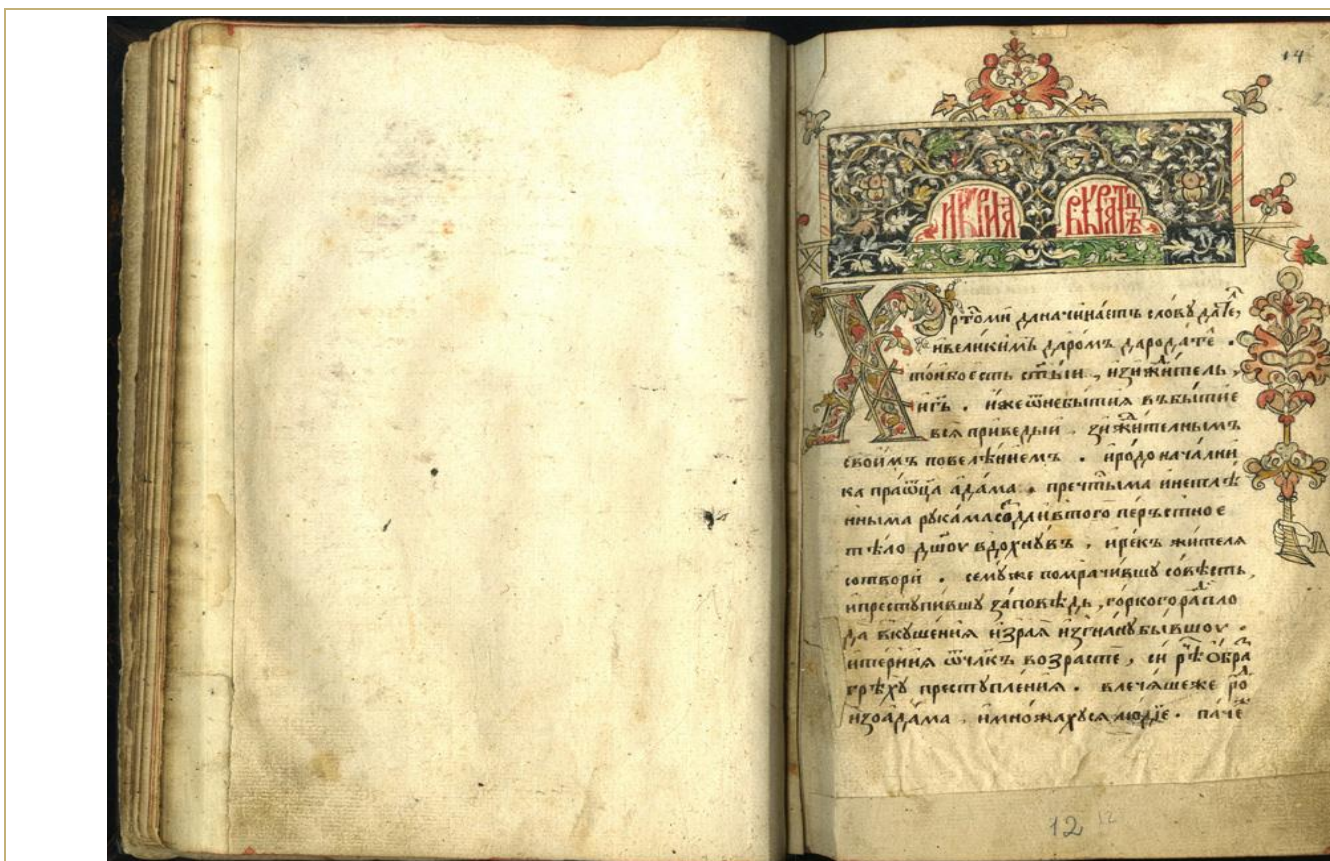 14
ИСТОРИЯ ВКРАТЦѢ
Хртоми да начинаетъ слову дате,
ивеликимъ даромъ дародате.
тойбоесть стыи, изижитель,
ижеѿнебытия въбытие
вся приведыи. зижителнымъ
своимъ повелѣниемъ. иродоначални
ка праѿца адама. пречтыма инетлѣ
нныма рукама перъстное
тѣло дшоу вдохнувъ. ирекъ жителя
сотвори. семуже помрачившу совѣсть,
ипреступившу заповѣдь, горкогора пло
да вкушения израя изгнану бывшоу.
итерния возрасте, си рѣ обра
грѣху преступления. влечашеже ро
изоадама. имножахуся людїе. паче
12 12